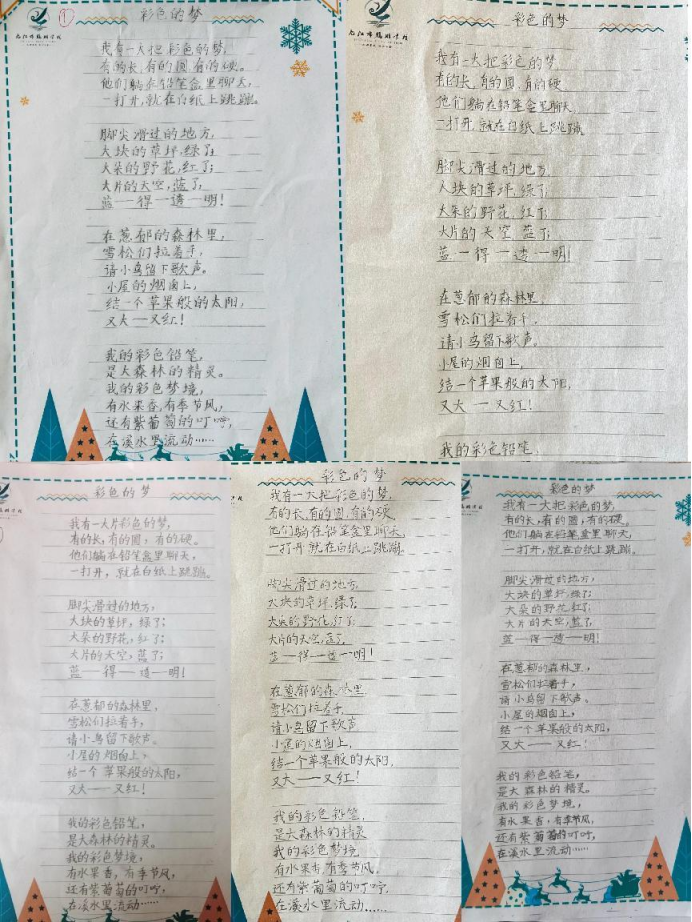 ①
彩色的梦
我有一大把彩色的梦,
有的长,有的圆,有的硬。
他们躺在铅笔盒里聊天,
一打开,就在白纸上跳蹦。
脚尖滑过的地方,
大块的草坪,绿了;
大朵的野花,红了;
大片的天空,蓝了,
蓝—得—透—明!
在葱郁的森林里,
雪松们拉着手,
请小鸟留下歌声。
小屋的烟囱上,
结一个苹果般的太阳,
又大—又红!
我的彩色铅笔,
是大森林的精灵。
我的彩色梦境,
有水果香,有季节风,
还有紫葡萄的叮咛,
在溪水里流动……
彩色的梦
我有一大把彩色的梦
有的长,有的圆,有的硬
他们躺在铅笔盒里聊天,
一打开,就在白纸上跳蹦
脚尖滑过的地方,
大块的草坪,绿了
大朵的野花,红了;
大片的天空,蓝了
蓝—得—透—明!
在葱郁的森林里,
雪松们拉着手,
请小鸟留下歌声。
小屋的烟囱上,
结一个苹果般的太阳,
又大—又红!
我的彩色铅笔,
彩色的梦
我有一大片彩色的梦,
有的长,有的圆,有的硬。
他们躺在铅笔盒里聊天,
一打开,就在白纸上跳蹦。
脚尖滑过的地方,
大块的草坪,绿了;
大朵的野花,红了;
大片的天空,蓝了;
蓝—得—透—明!
在葱郁的森林里,
雪松们拉着手,
请小鸟留下歌声。
小屋的烟囱上,
结一个苹果般的太阳,
又大—又红!
我的彩色铅笔,
是大森林的精灵。
我的彩色梦境,
有水果香,有季节风,
还有紫葡萄的叮咛,
在溪水里流动……
彩色的梦
我有一大把彩色的梦,
有的长,有的圆,有的硬
他们躺在铅笔盒里聊天,
一打开就在白纸上跳蹦
脚尖滑过的地方,
大块的草坪,绿了;
大朵的野花,红了;
大片的天空,蓝了
蓝—得—透—明!
在葱郁的森林里
雪松们拉着手
请小鸟留下歌声
小屋的烟囱上,
结一个苹果般的太阳,
又大—又红!
我的彩色铅笔,
是大森林的精灵
我的彩色梦境,
有水果香,有季节风,
还有紫葡萄的叮咛,
在溪水里流动……
彩色的梦
我有一大把彩色的梦,
有的长,有的圆,有的硬。
他们躺在铅笔盒里聊天,
一打开,就在白纸上跳蹦。
脚尖滑过的地方,
大块的草坪,绿了;
大朵的野花,红了;
大片的天空,蓝了,
蓝—得—透—明!
在葱郁的森林里,
雪松们拉着手,
请小鸟留下歌声。
小屋的烟囱上,
结一个苹果般的太阳,
又大—又红!
我的彩色铅笔,
是大森林的精灵。
我的彩色梦境,
有水果香,有季节风,
还有紫葡萄的叮咛,
在溪水里流动……